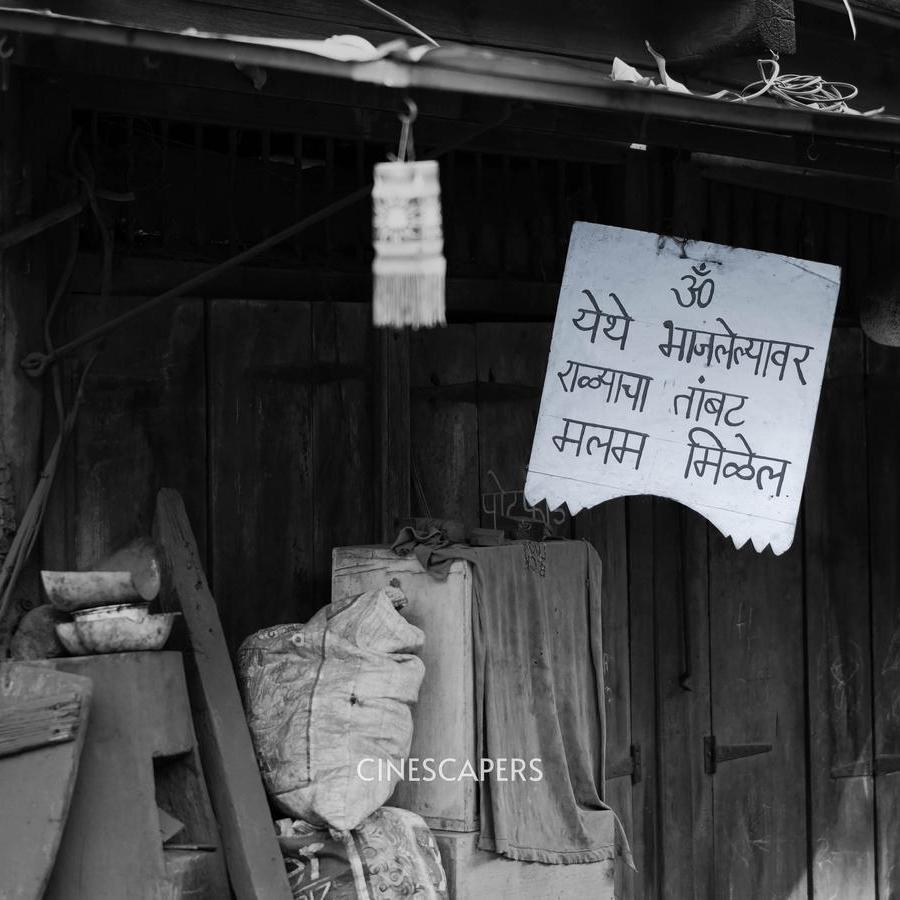 ॐ
येथे भाजलेल्यावर
राळ्याचा तांबट
मलम मिळेल.
CINESCAPERS